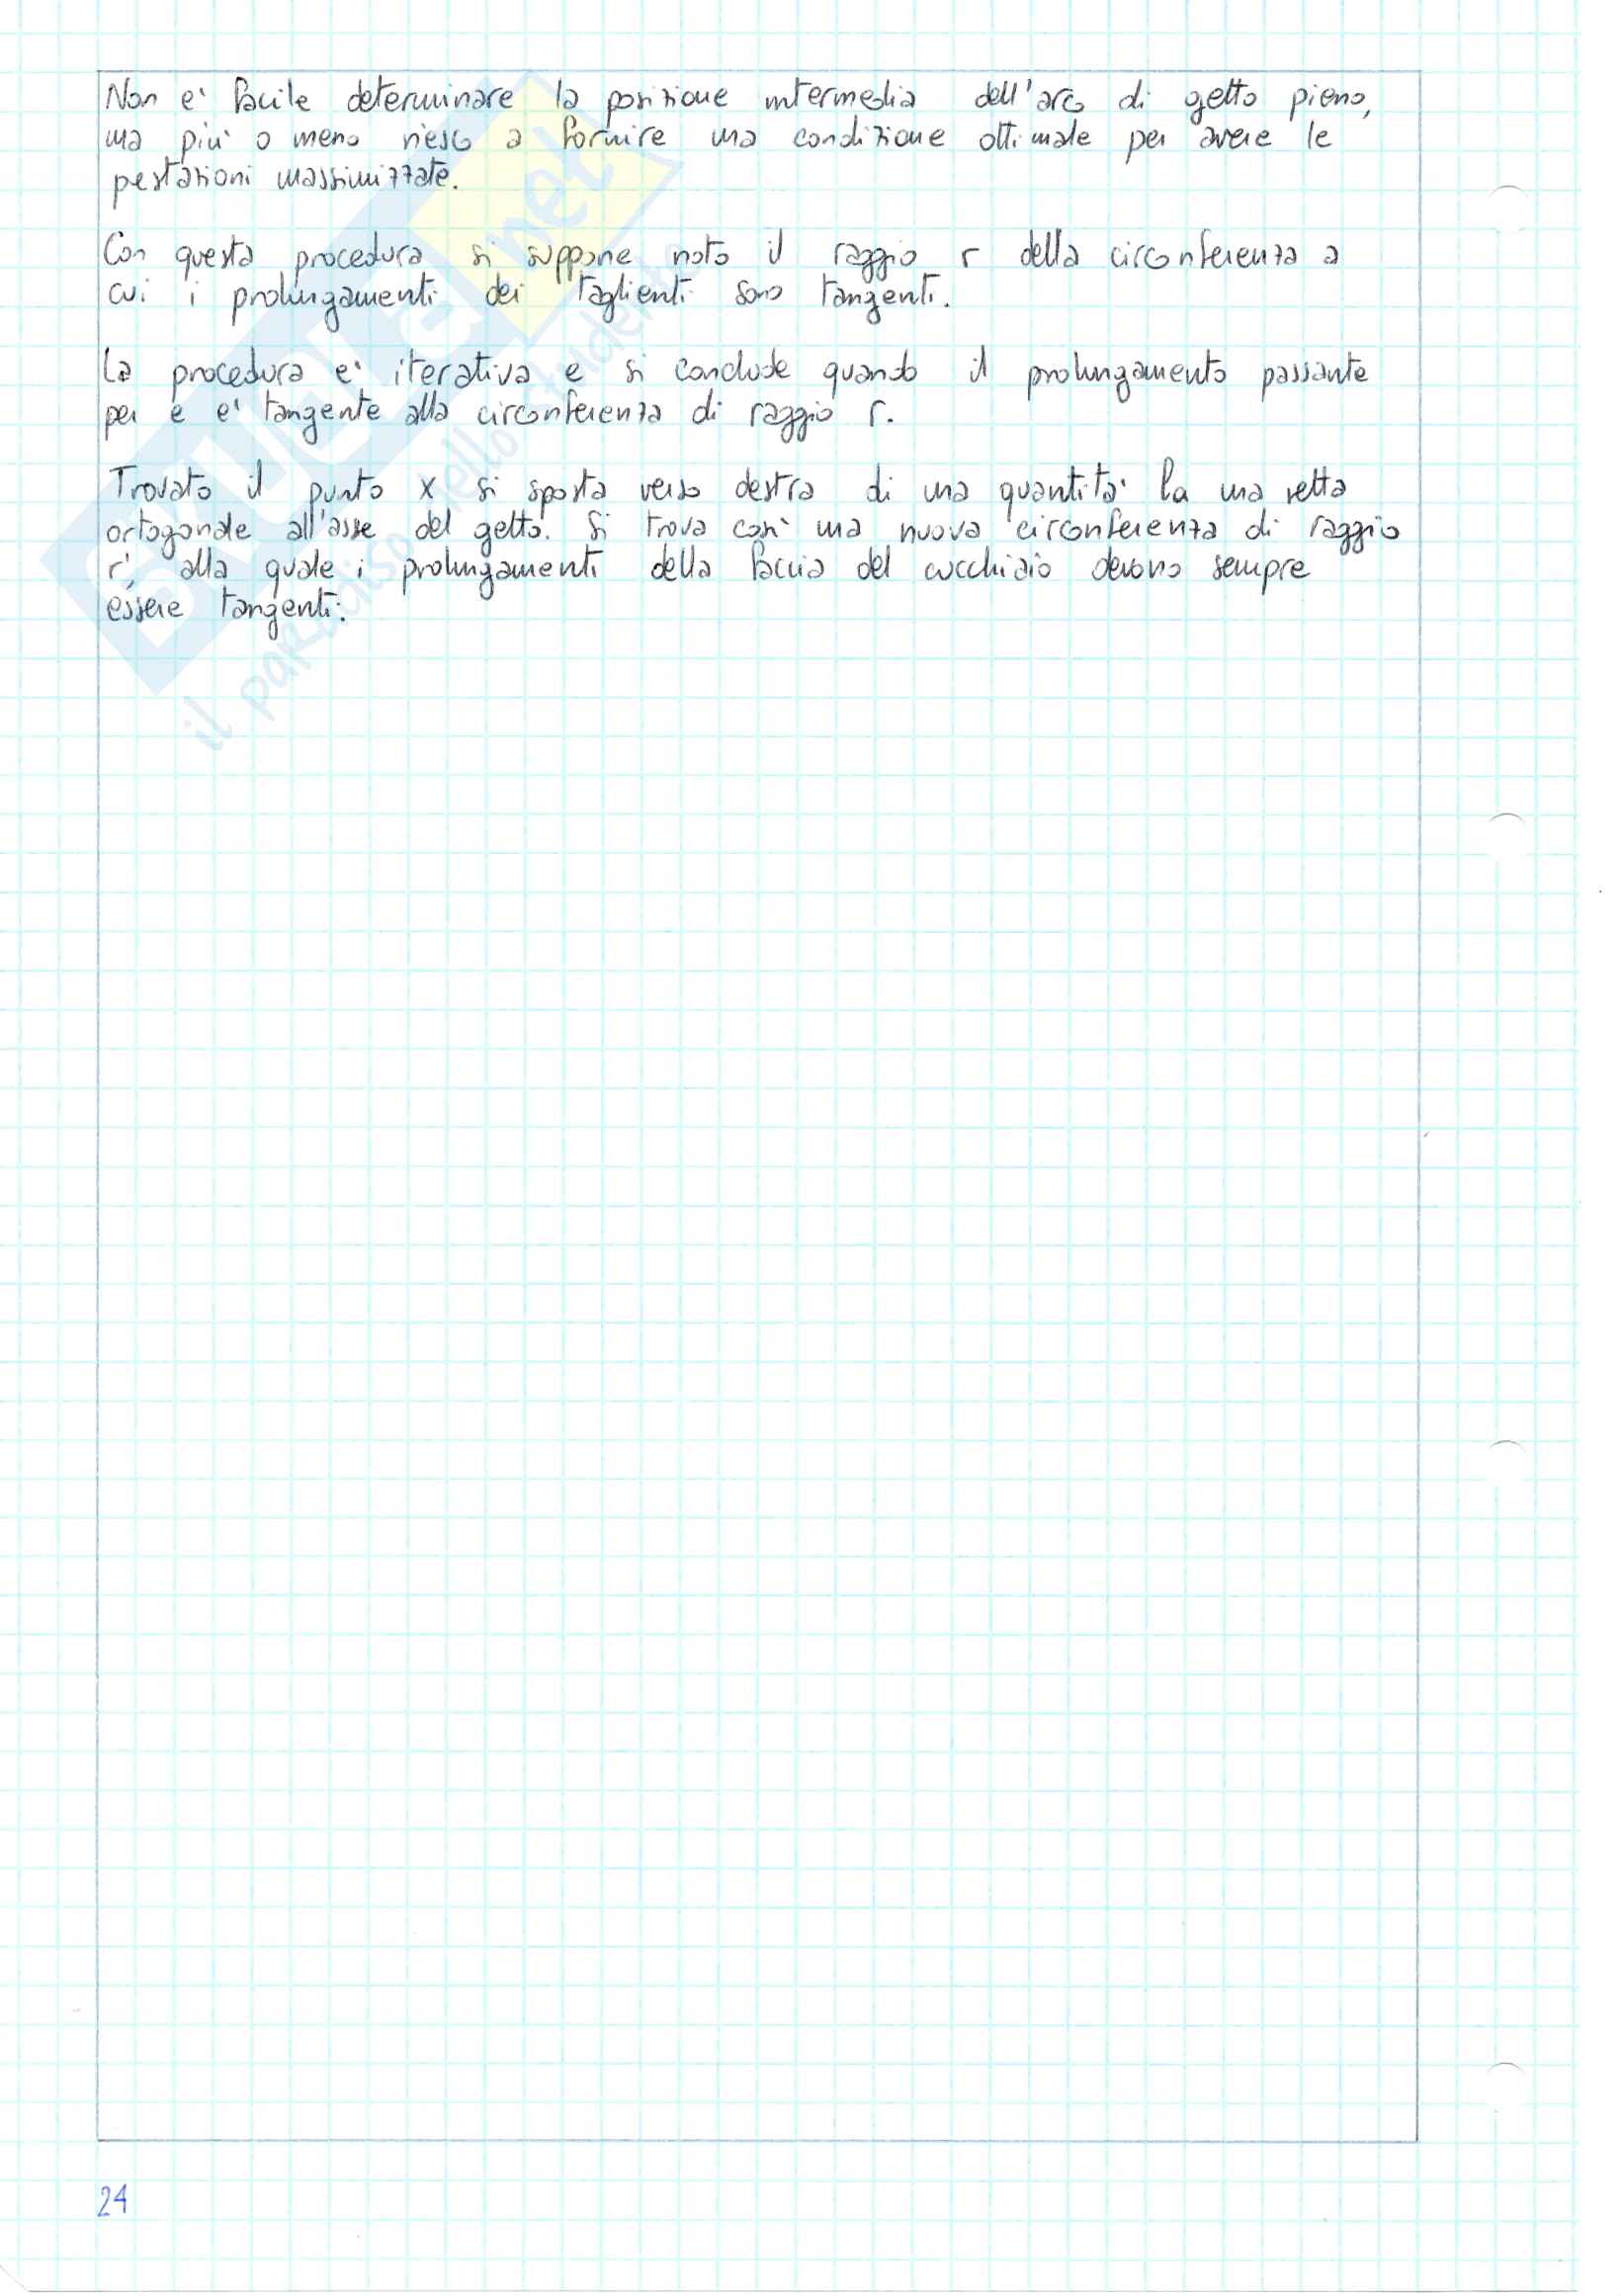 Non e' facile determinare la posizione intermedia dell'arco di getto pieno,
ma piu' o meno riesco a fornire una condizione ottimale per avere le
pestazioni massimizzate.
Con questa procedura si suppone noto il raggio r della circonferenza a
cui i prolungamenti dei taglienti sono tangenti.
La procedura e' iterativa e si conclude quando il prolungamento passante
per e e' tangente alla circonferenza di raggio r.
Trovato il punto x si sposta verso destra di una quantita' la una retta
ortogonale all'asse del getto. Si trova cosi' una nuova circonferenza di raggio
r', alla quale i prolungamenti della faccia del cucchiaio devono sempre
essere tangenti.
SKUOLA.net
il paradiso dello studente
24